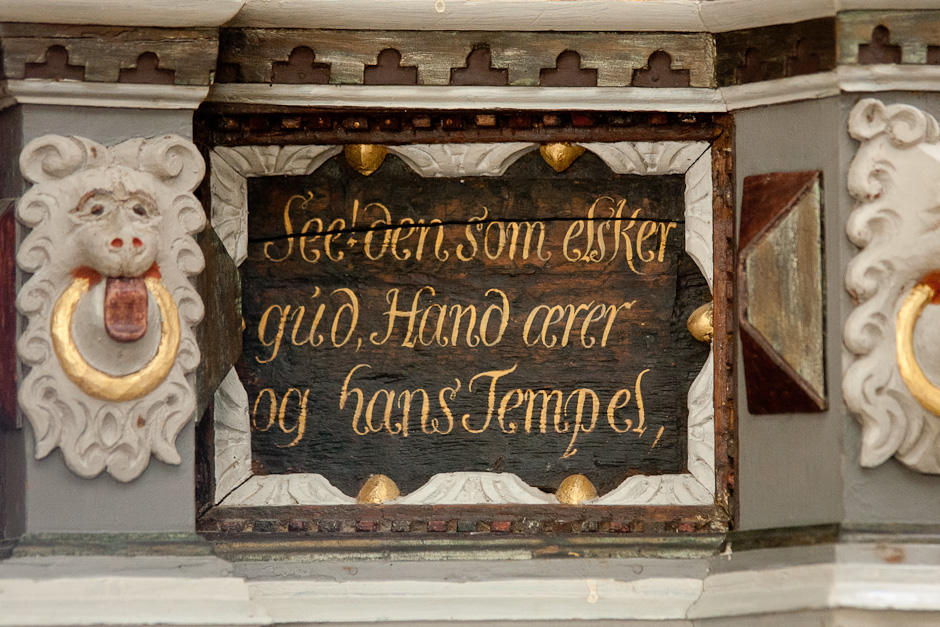 See! den som elsker
gúd, Hand ærer
og hans Tempel,